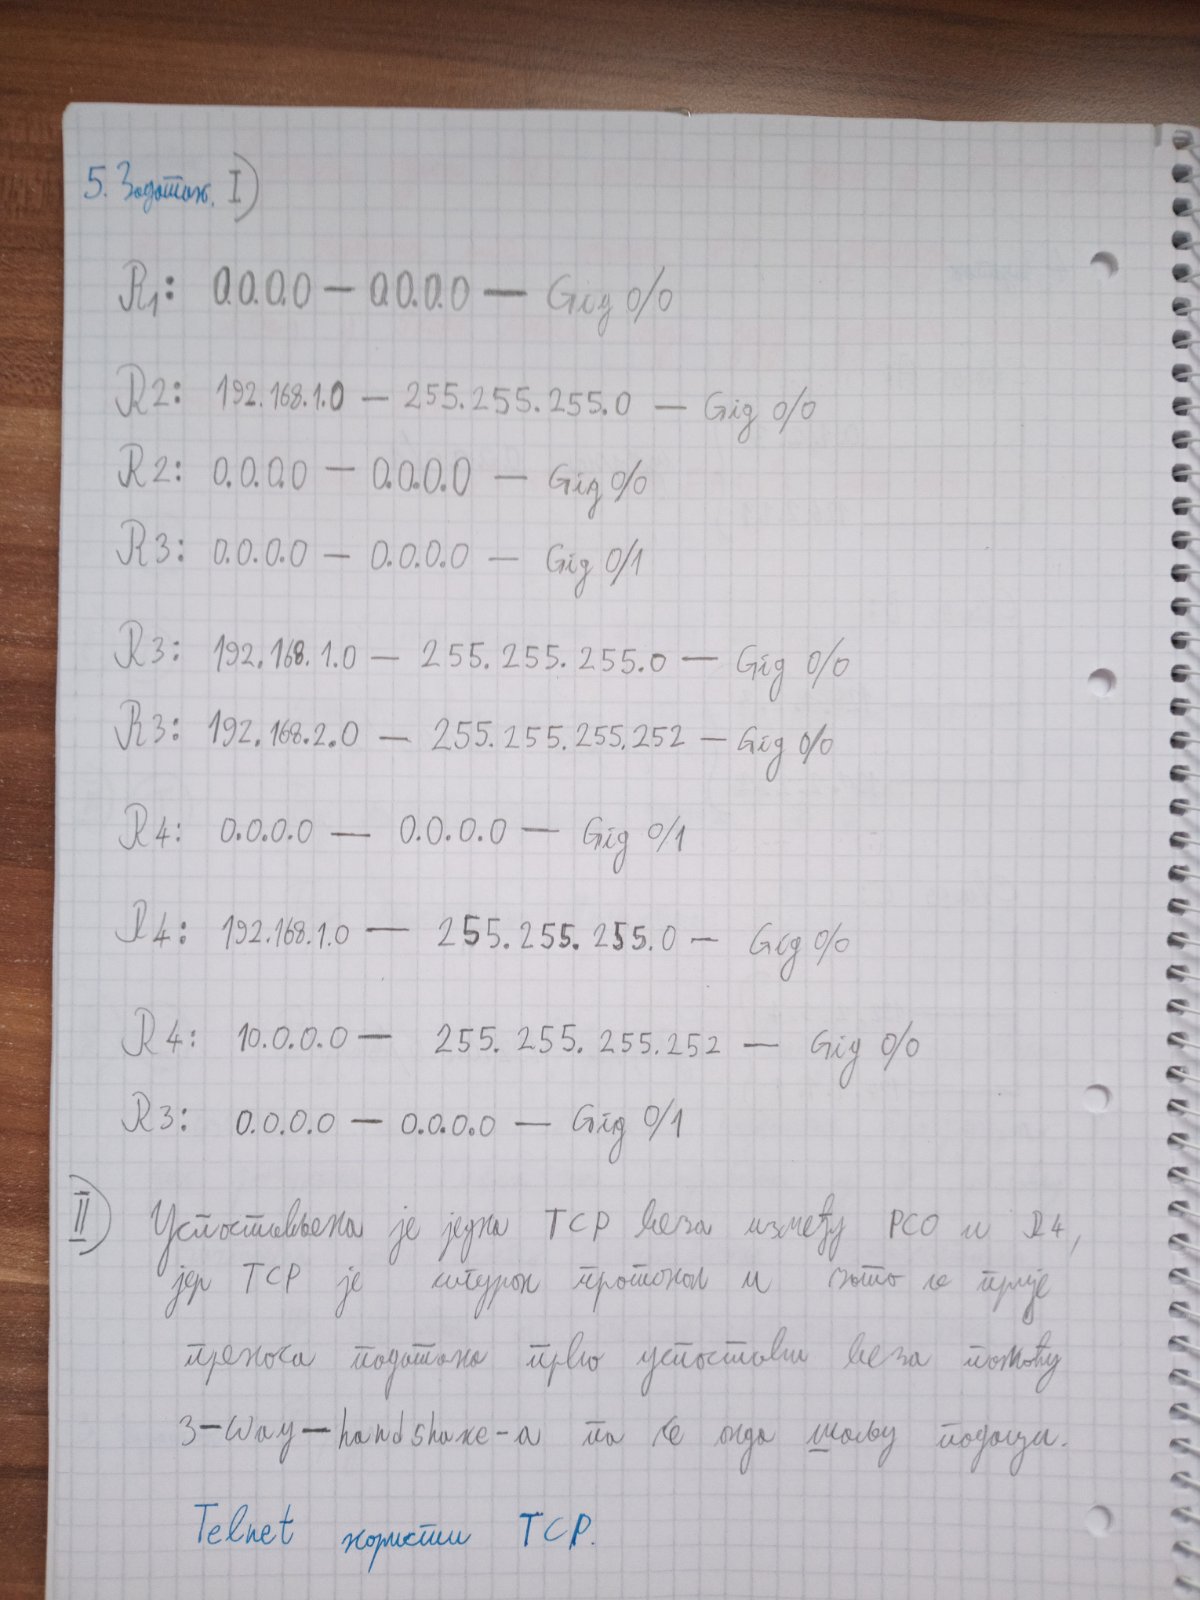 5. Задатак. I)
R1: 0.0.0.0 — 0.0.0.0 — Gig 0/0
R2: 192.168.1.0 — 255.255.255.0 — Gig 0/0
R2: 0.0.0.0 — 0.0.0.0 — Gig 0/0
R3: 0.0.0.0 — 0.0.0.0 — Gig 0/1
R3: 192.168.1.0 — 255.255.255.0 — Gig 0/0
R3: 192.168.2.0 — 255.255.255.252 — Gig 0/0
R4: 0.0.0.0 — 0.0.0.0 — Gig 0/1
R4: 192.168.1.0 — 255.255.255.0 — Gig 0/0
R4: 10.0.0.0 — 255.255.255.252 — Gig 0/0
R3: 0.0.0.0 — 0.0.0.0 — Gig 0/1
II) Успостављена је једна TCP веза између PC0 и R4,
јер TCP је сигуран протокол и зато се прије
преноса података прво успостави веза помоћу
3-Way-handshake-a па се онда шаљу подаци.
Telnet користи TCP.